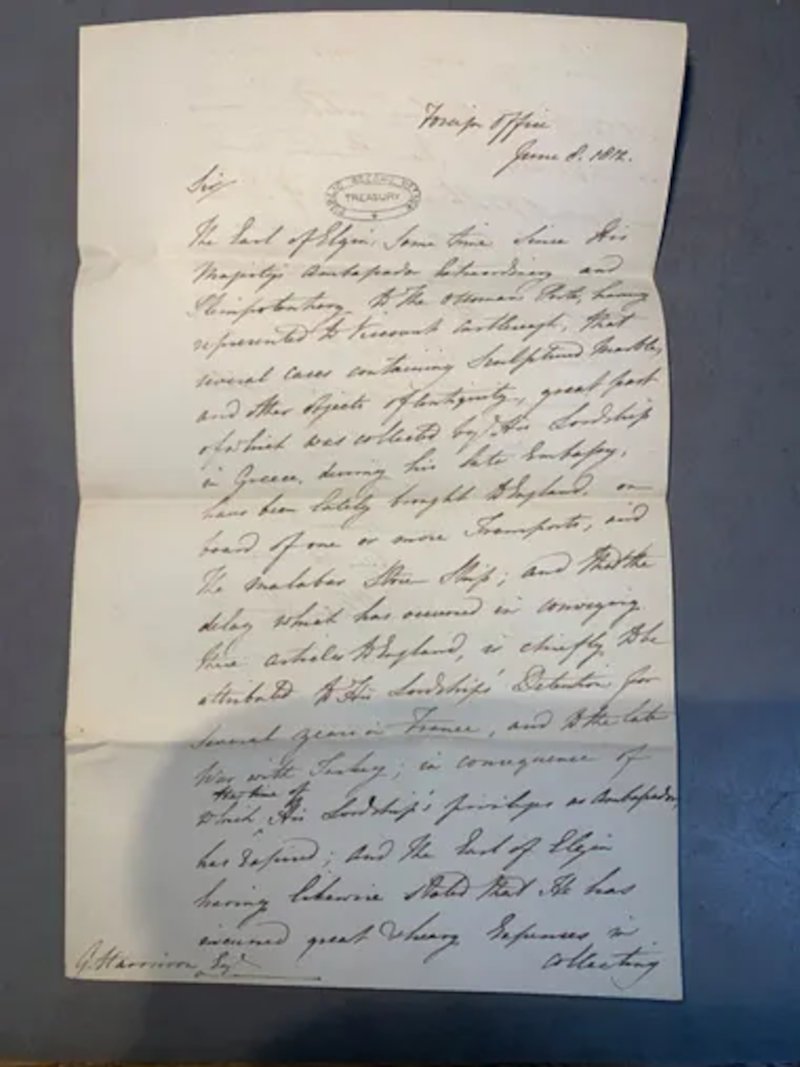 Foreign Office
June 8. 1812.
Sir
PUBLIC RECORD OFFICE
TREASURY
The Earl of Elgin, some time since His
Majesty's Ambassador Extraordinary and
Plenipotentiary to the Ottoman Porte, having
represented to Viscount Castlereagh, that
several cases containing Sculptured Marbles
and other objects of Antiquity, great part
of which was collected by His Lordship
in Greece, during his late Embassy,
have been lately brought to England, on
board of one or more Transports, and
the Malabar Store Ship; and that the
delay which has occurred in conveying
these articles to England, is chiefly to be
attributed to His Lordships' Detention for
several years in France, and to the late
War with Turkey; in consequence of
the time of
which His Lordship's privileges as Ambassador,
has expired; and the Earl of Elgin
having likewise stated that He has
incurred great & heavy Expenses in
G. Harrison Esqr.
collecting